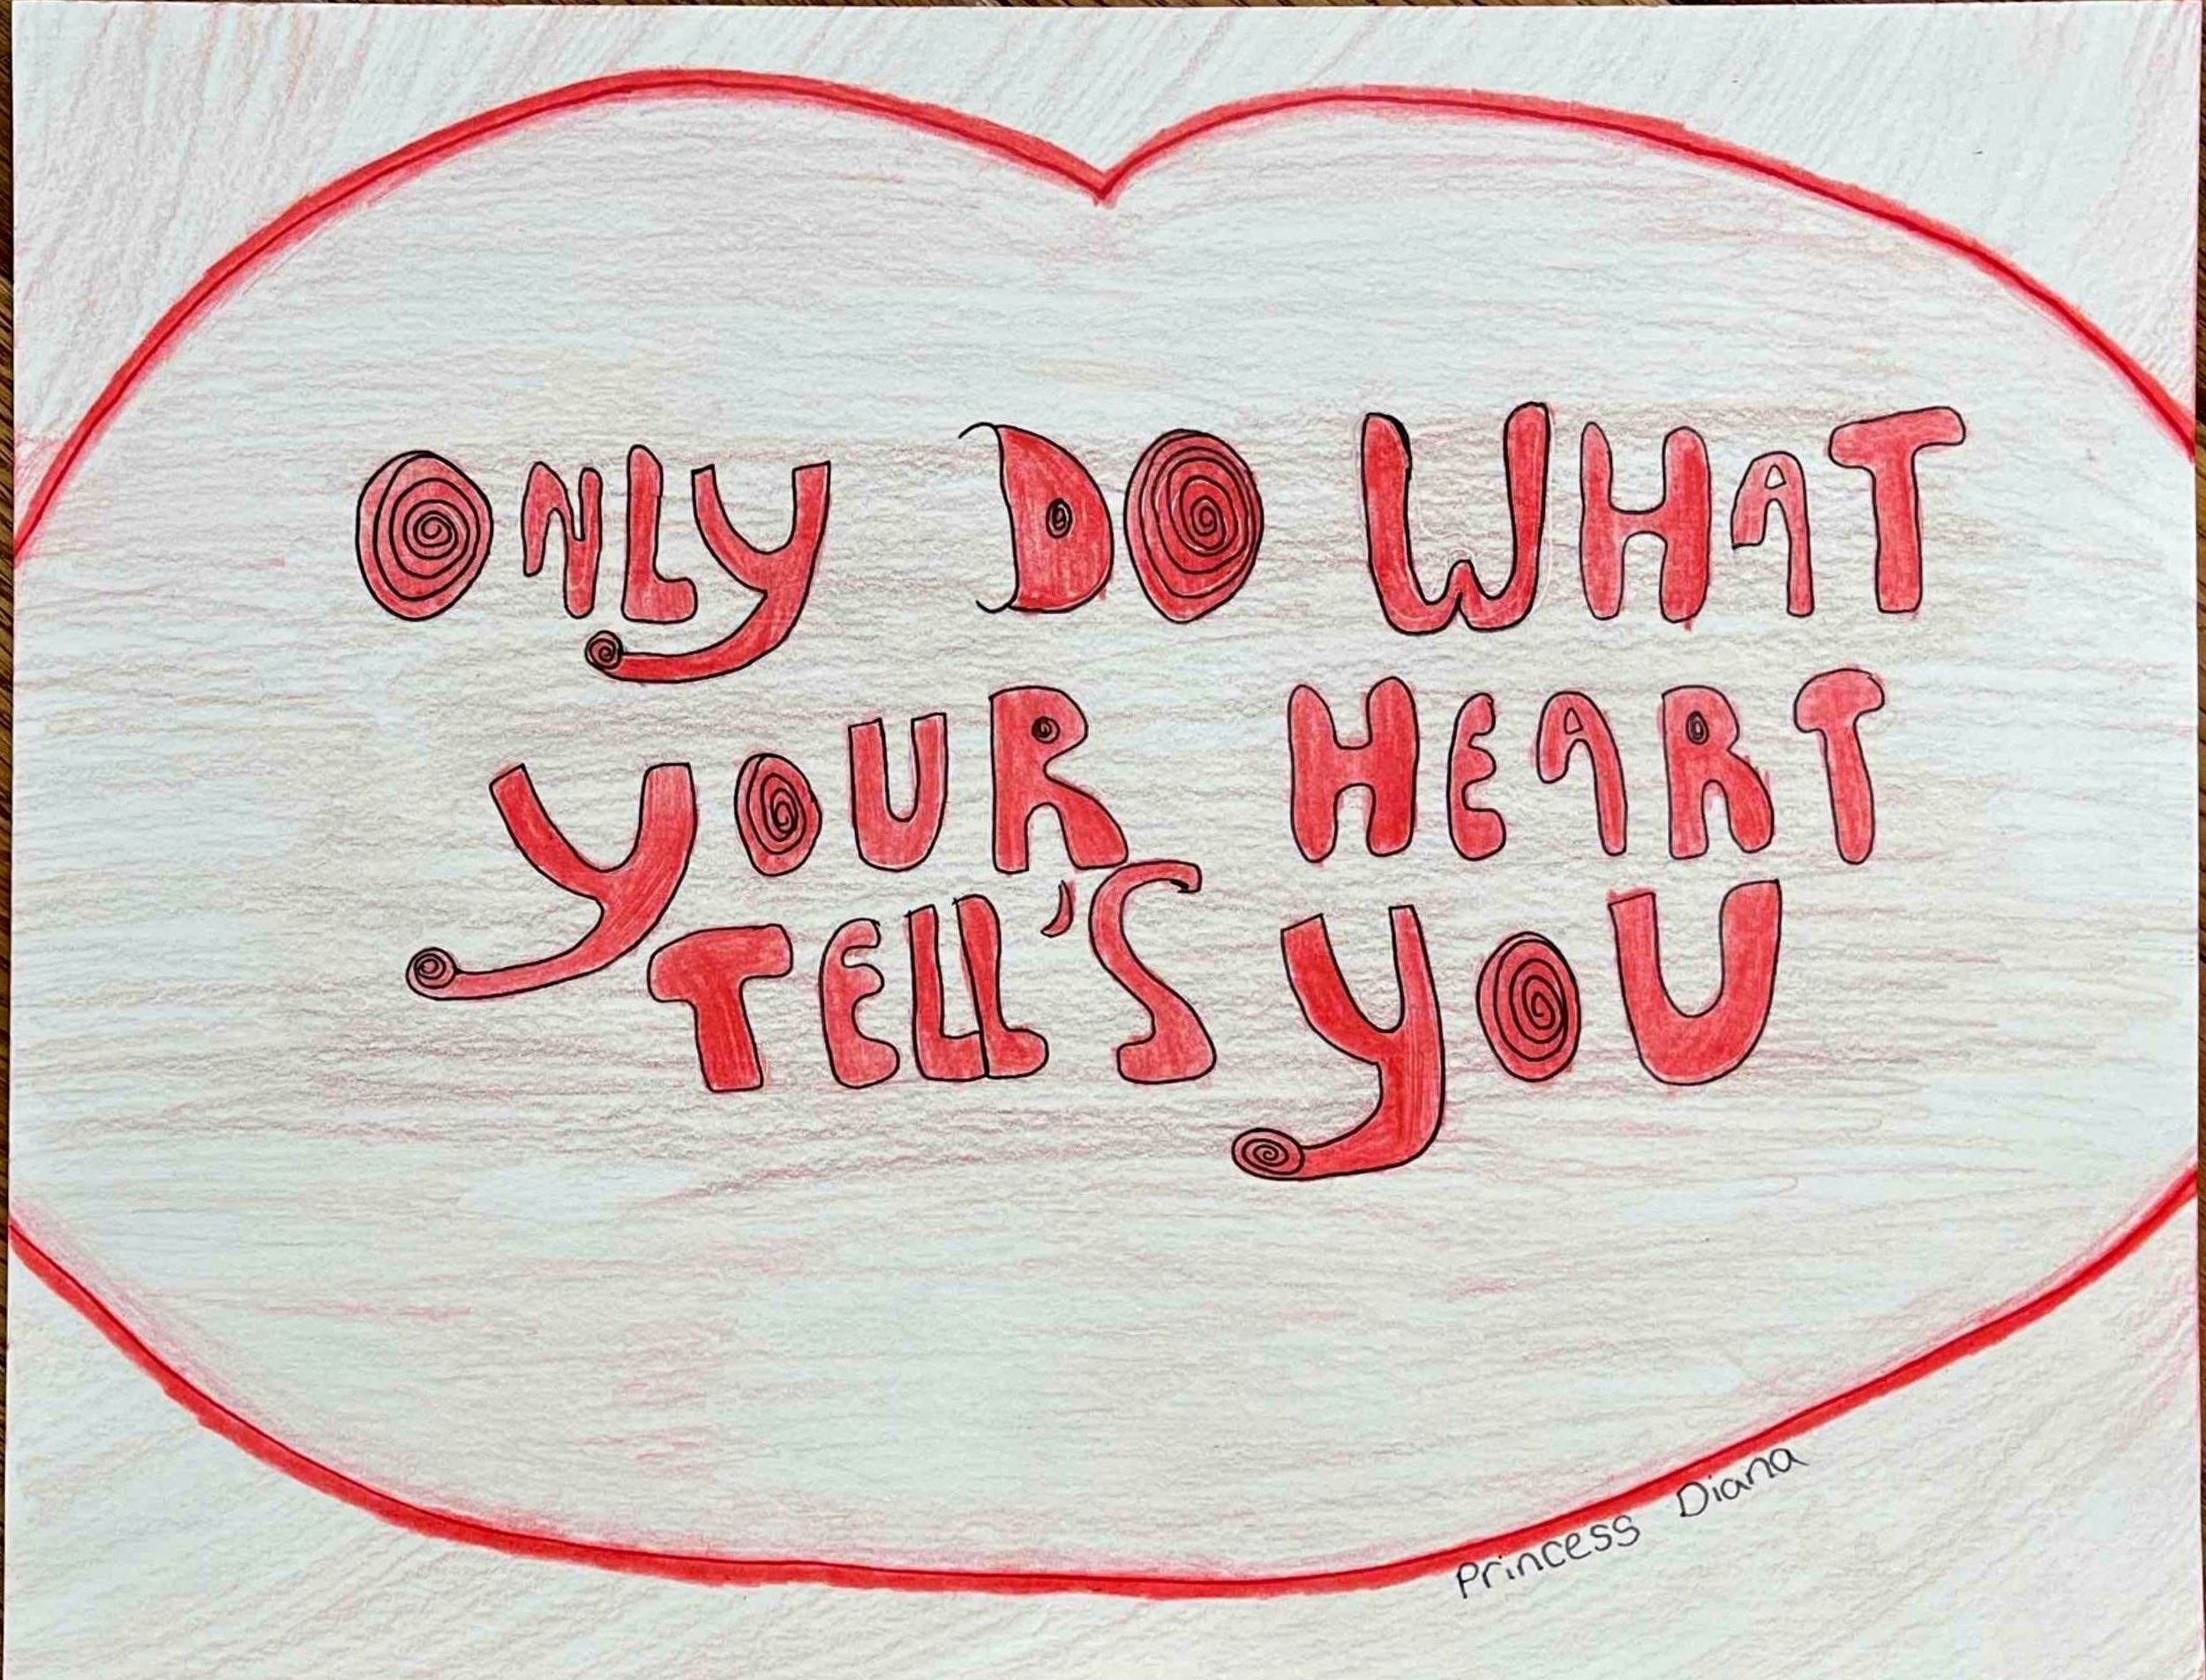 ONLY DO WHAT
YOUR HEART
TELL'S YOU
Princess Diana